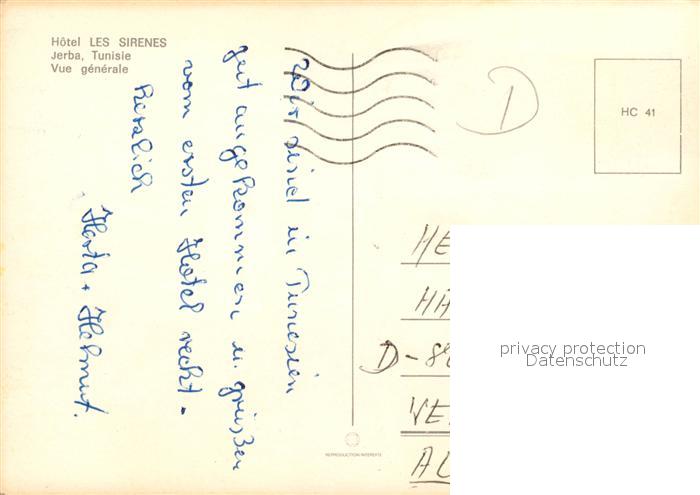 Hôtel LES SIRENES
Jerba, Tunisie
Vue générale
Wir sind in Tunesien
gut angekommen u. grüßen
vom ersten Hotel recht
herzlich
Herta + Helmut.
D
HC 41
HE
HA
D-8
VE
AL
privacy protection
Datenschutz
REPRODUCTION INTERDITE